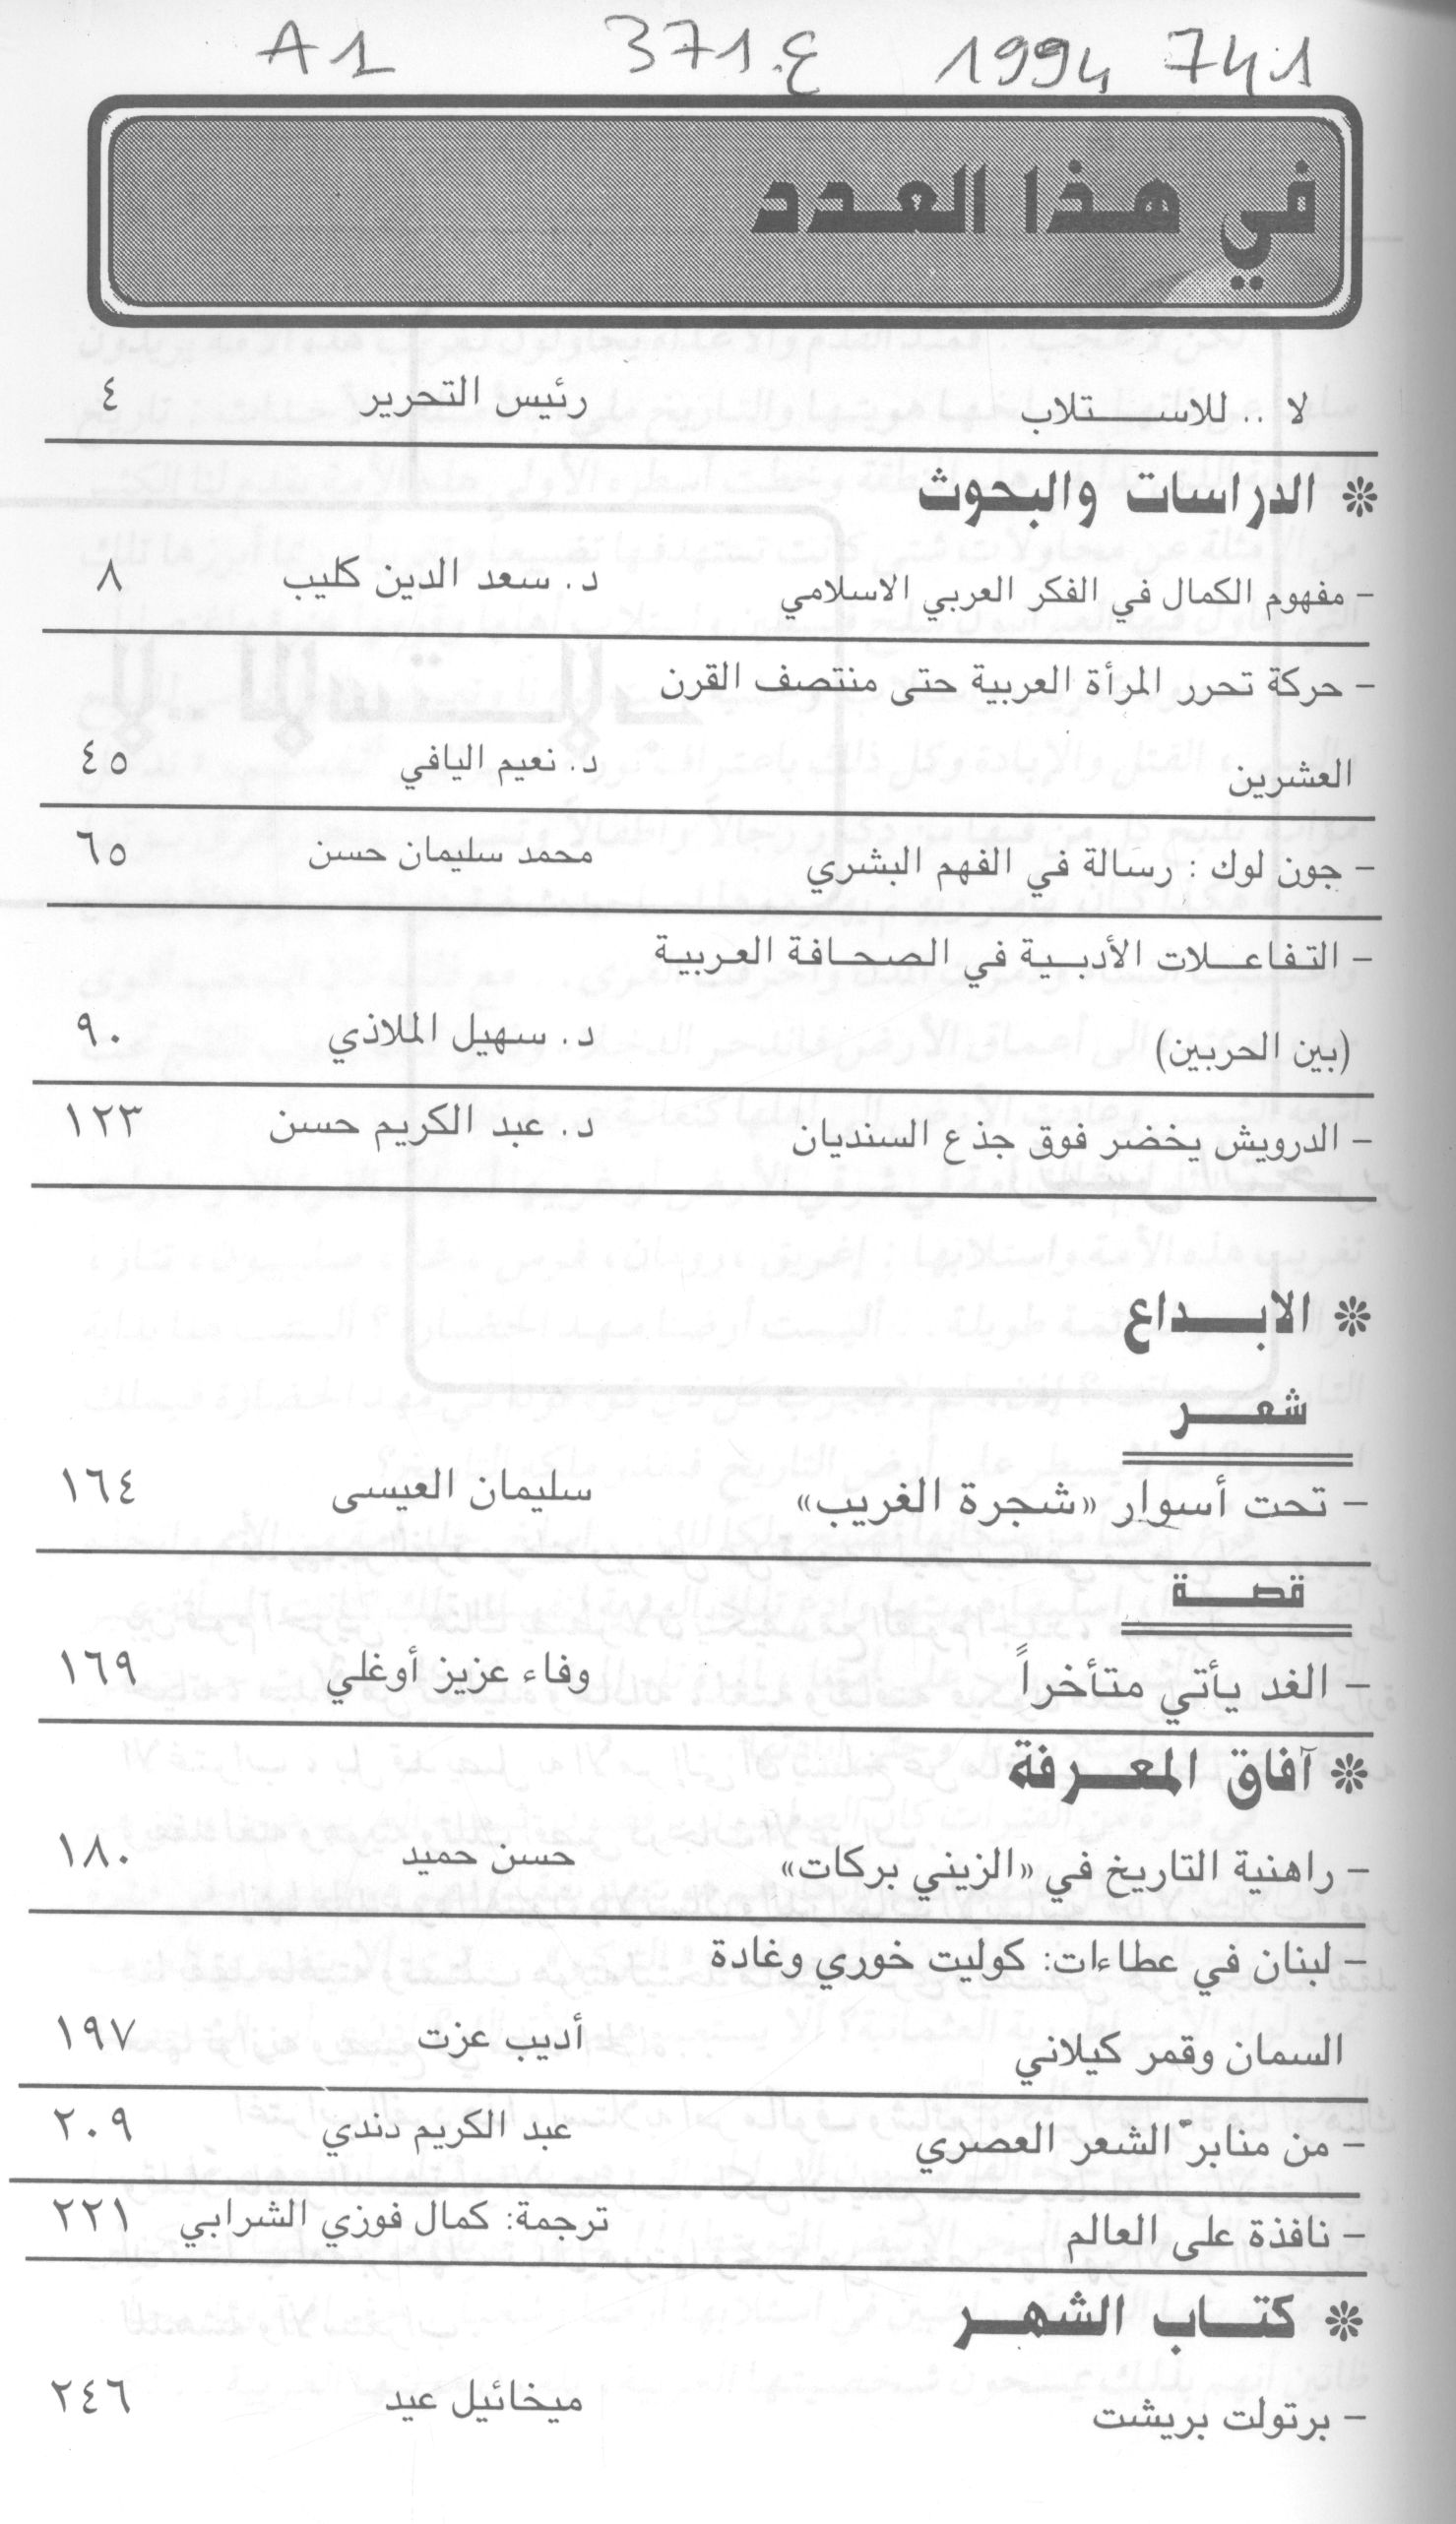 A1 371.ع 1994 741
في هذا العدد
لا .. للاستلاب رئيس التحرير ٤
❊ الدراسات والبحوث
- مفهوم الكمال في الفكر العربي الاسلامي د. سعد الدين كليب ٨
- حركة تحرر المرأة العربية حتى منتصف القرن
العشرين د. نعيم اليافي ٤٥
- جون لوك : رسالة في الفهم البشري محمد سليمان حسن ٦٥
- التفاعلات الأدبية في الصحافة العربية
(بين الحربين) د. سهيل الملاذي ٩٠
- الدرويش يخضر فوق جذع السنديان د. عبد الكريم حسن ١٢٣
❊ الابداع
شعر
- تحت أسوار «شجرة الغريب» سليمان العيسى ١٦٤
قصة
- الغد يأتي متأخراً وفاء عزيز أوغلي ١٦٩
❊ آفاق المعرفة
- راهنية التاريخ في «الزيني بركات» حسن حميد ١٨٠
- لبنان في عطاءات: كوليت خوري وغادة
السمان وقمر كيلاني أديب عزت ١٩٧
- من منابر الشعر العصري عبد الكريم دندي ٢٠٩
- نافذة على العالم ترجمة: كمال فوزي الشرابي ٢٢١
❊ كتاب الشهر
- برتولت بريشت ميخائيل عيد ٢٤٦